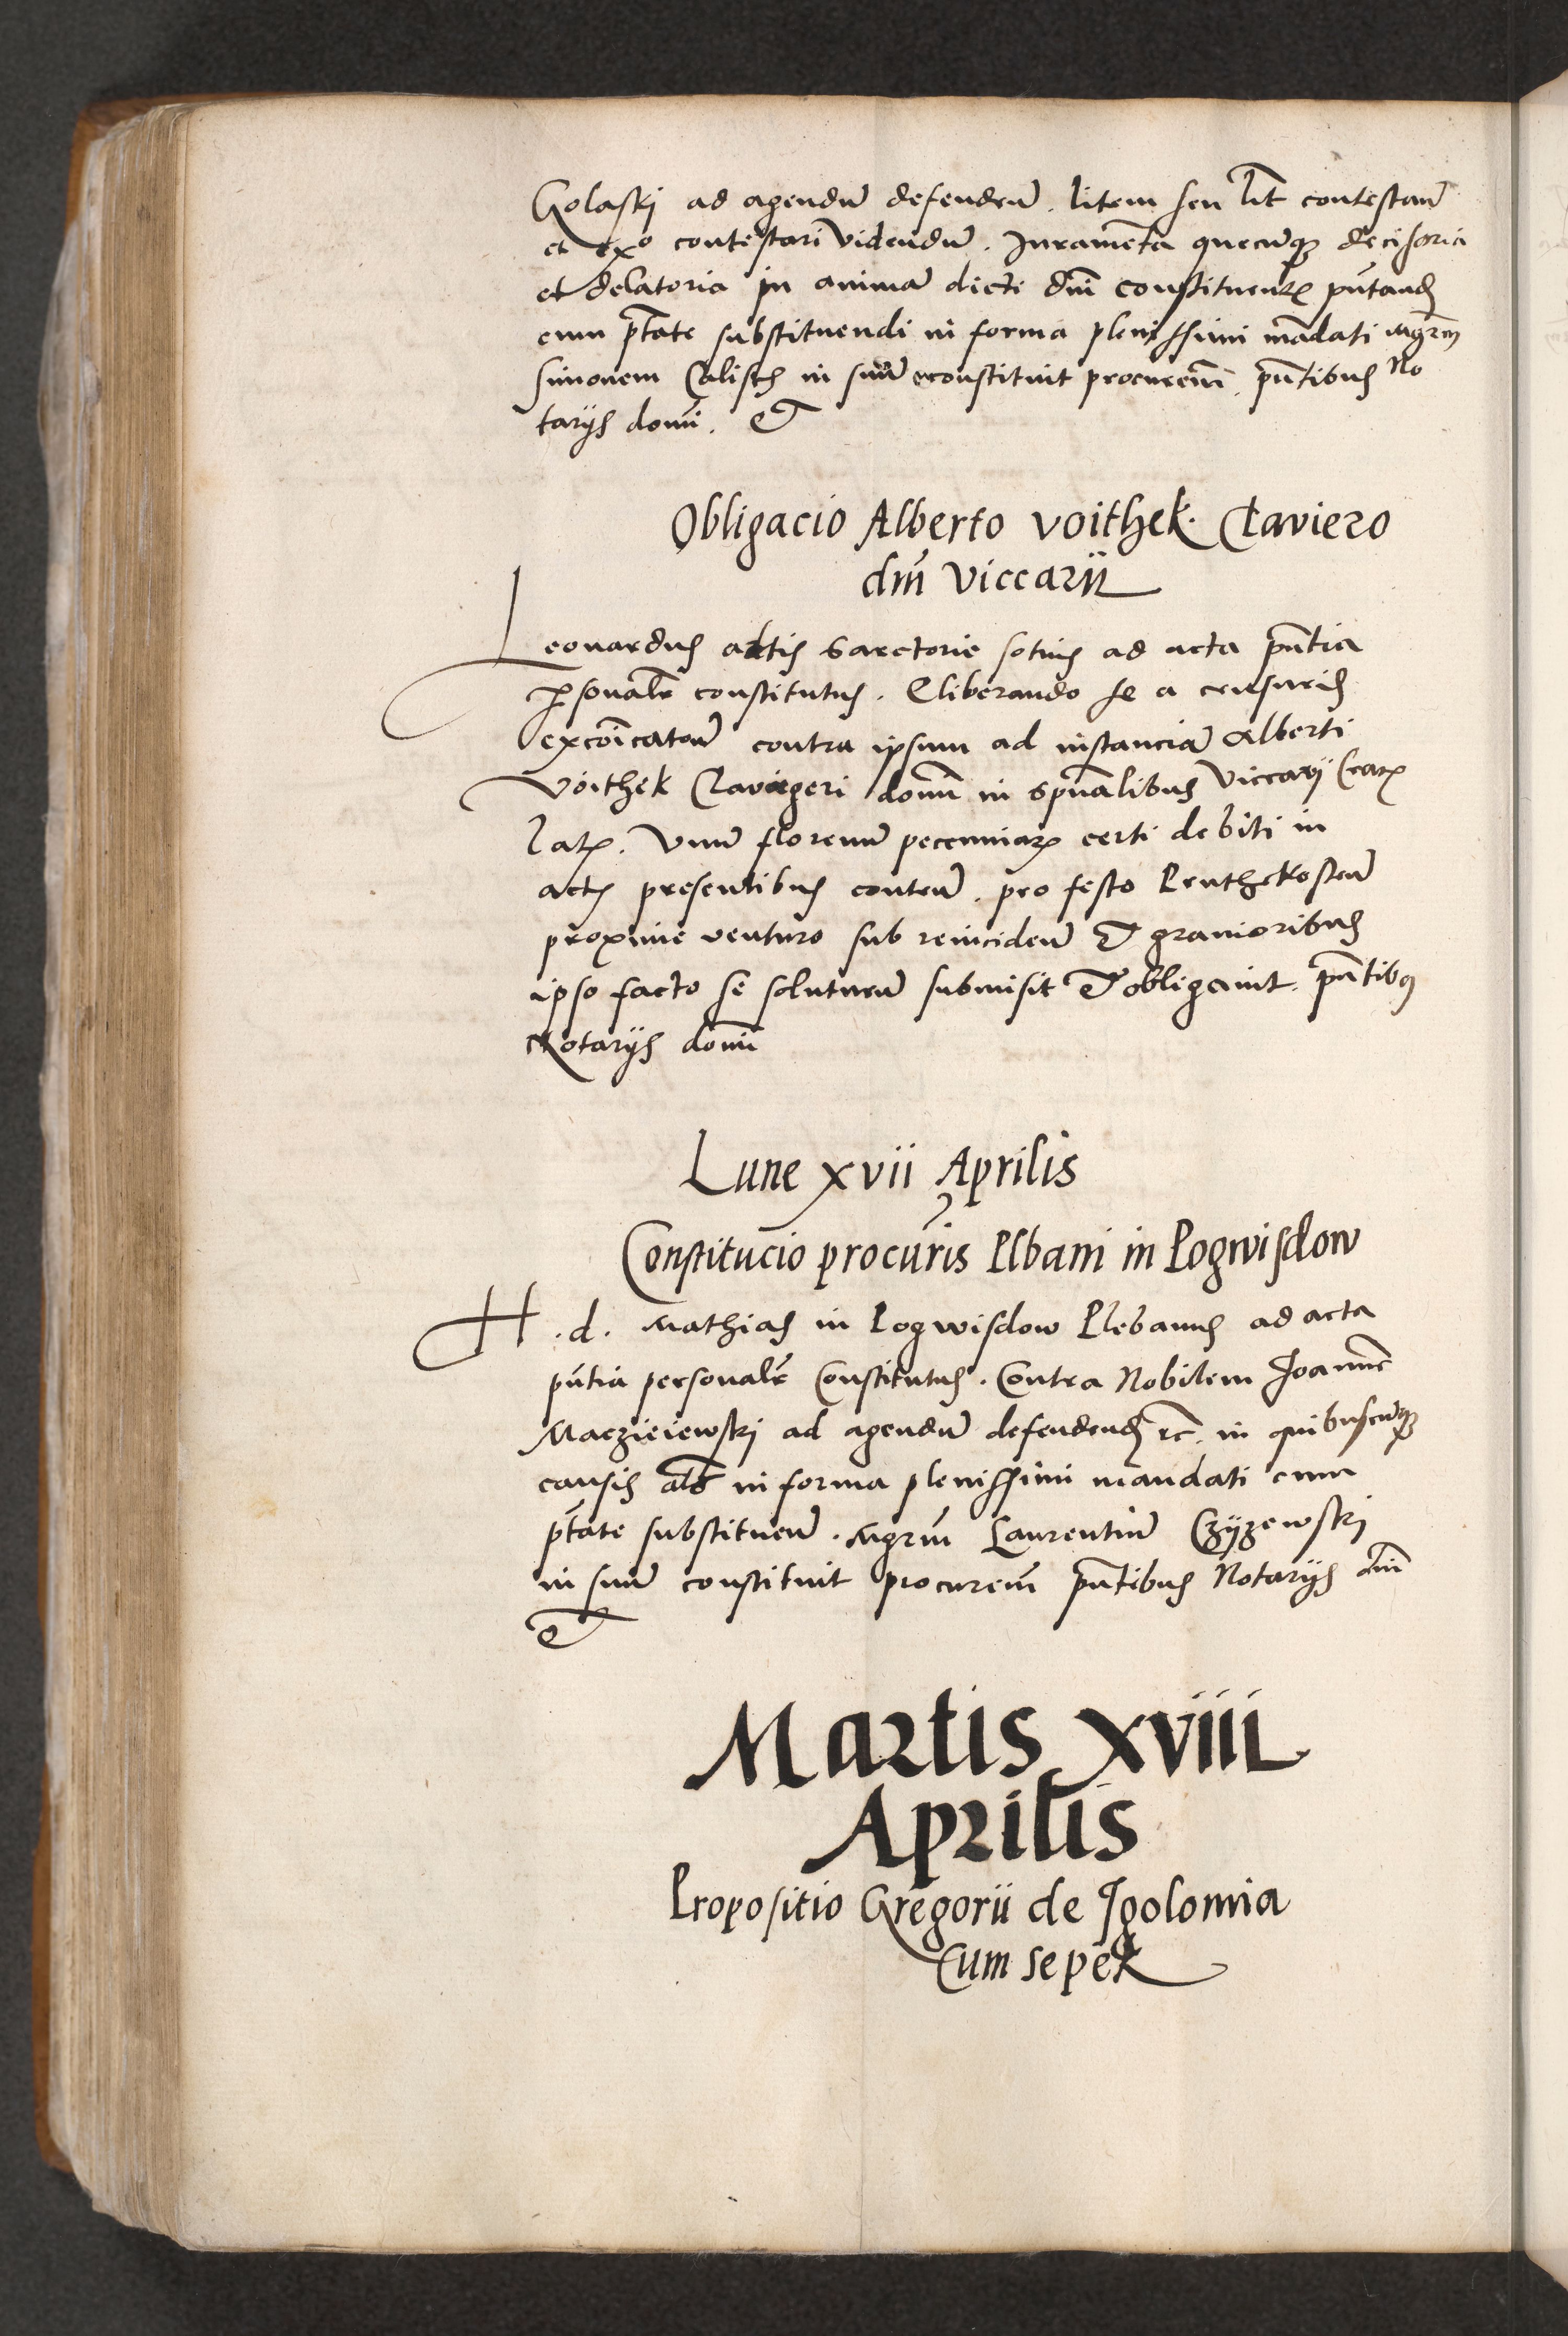 Golaski ad agendū defendeū. litem seu lit̄ contestaū
et ex° contestari videndū. Iurameñta quecūqꝫ decisoria
et delatoria in animā dicti dn̄i constituentꝭ pn̄tandꝭ
cum pt̄ate substituendi in forma plenissimi mādati mgr̄m
Simonem Calisch in suū constituit procurem̄. pn̄tibus No
tarijs domī. Et
Obligacio Alberto Voithek. Claviero
dn̄i Viccarii
Leonardus artis sarctorie sotius ad acta pn̄tia
ꝑsonalr̄ constitutus. Eliberando se a censuris
excōicatoū contra ipsum ad instanciā Alberti
Voithek Clavigeri domī in spūalibus Viccarij Cracꝭ
latꝭ. Vnū florenū pecuniarꝭ certi debiti in
actis presentibus conteū. pro festo Penthekosteū
proxime venturo sub reincideū Et gravioribus
ipso facto se soluturū submisit Et obligavit. pn̄tibus
Notarijs domī
Lune xvii Aprilis
Constitucio procur̄is Plbani in Pogwisdow
H. d. Mathias in Pogwisdow Plebanus ad acta
pn̄tia personalr̄ Constitutus. Contra Nobilem Joannē
Maczieiewski ad agendū defendendꝭ etc̄. in quibuscūqꝫ
causis al̄s in forma plenissimi mandati cum
pt̄ate substitueū. Mgrm̄ Laurentiū Czÿzewski
in suū constituit procurem̄ pn̄tibus Notarijs dn̄i
Et
Martis xviii
Aprilis
Propositio Gregorii de Igolomia
Cum sepek